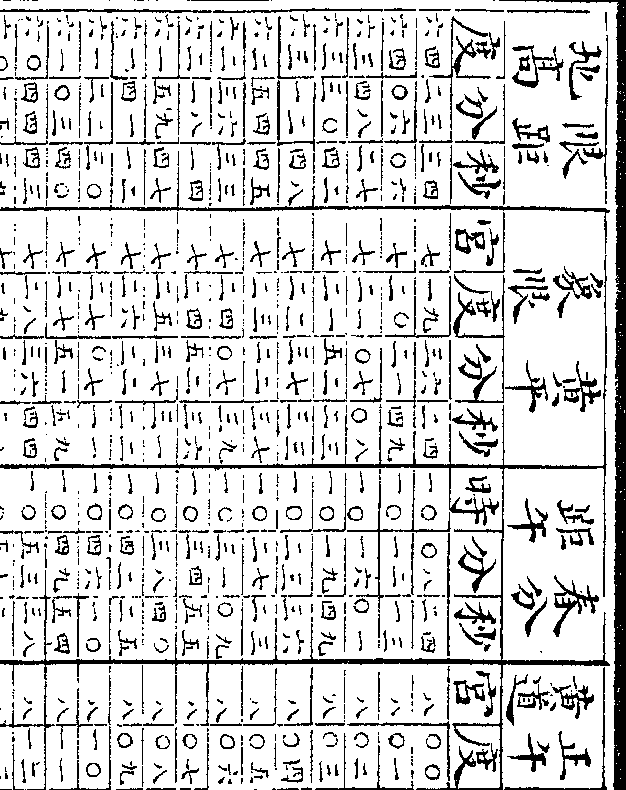 限距地高 黃平象限 春分距午 正午黃道
度 分 秒 宮 度 分 秒 時 分 秒 宮 度
六四 二三 三四 七 一九 三六 二四 一〇 〇八 二四 八 〇〇
六四 〇六 〇六 七 二〇 二一 四九 一〇 一二 一三 八 〇一
六三 四八 二七 七 二一 〇七 〇八 一〇 一六 〇一 八 〇二
六三 三〇 四二 七 二一 五二 二三 一〇 一九 四九 八 〇三
六三 一二 四八 七 二二 三七 三三 一〇 二三 三六 八 〇四
六二 五四 四五 七 二三 二二 三七 一〇 二七 二三 八 〇五
六二 三六 三三 七 二四 〇七 三九 一〇 三一 〇九 八 〇六
六二 一八 一四 七 二四 五二 三六 一〇 三四 五五 八 〇七
六一 五九 四七 七 二五 三七 三一 一〇 三八 四〇 八 〇八
六一 四一 一二 七 二六 二二 二二 一〇 四二 二五 八 〇九
六一 二二 三〇 七 二七 〇七 一一 一〇 四六 一〇 八 一〇
六一 〇三 四〇 七 二七 五一 五九 一〇 四九 五四 八 一一
六〇 四四 四三 七 二八 三六 四四 一〇 五三 三八 八 一二